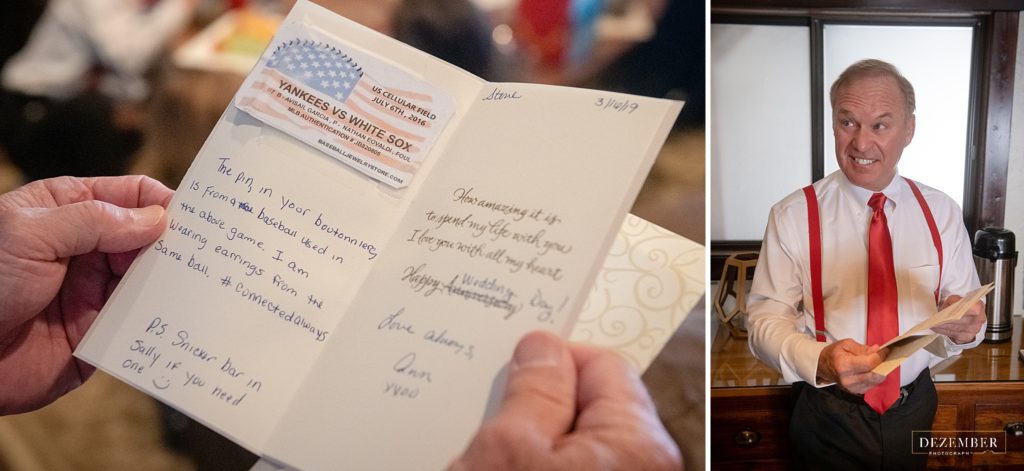 YANKEES VS WHITE SOX
US CELLULAR FIELD
JULY 6TH, 2016
MLB AUTHENTICATION # JD820805
BASEBALLJEWELRYSTORE.COM
The pin, in your boutonniere,
is from a baseball used in
the above game. I am
Wearing earrings from the
Same ball. #connectedalways
P.S. Snicker bar in
Sally if you need
one
Steve
3/16/19
How amazing it is
to spend my life with you
I love you with all my heart
Wedding
Happy Anniversary, Day!
Love always,
Ann
xxoo
DEZEMBER
PHOTOGRAPHY